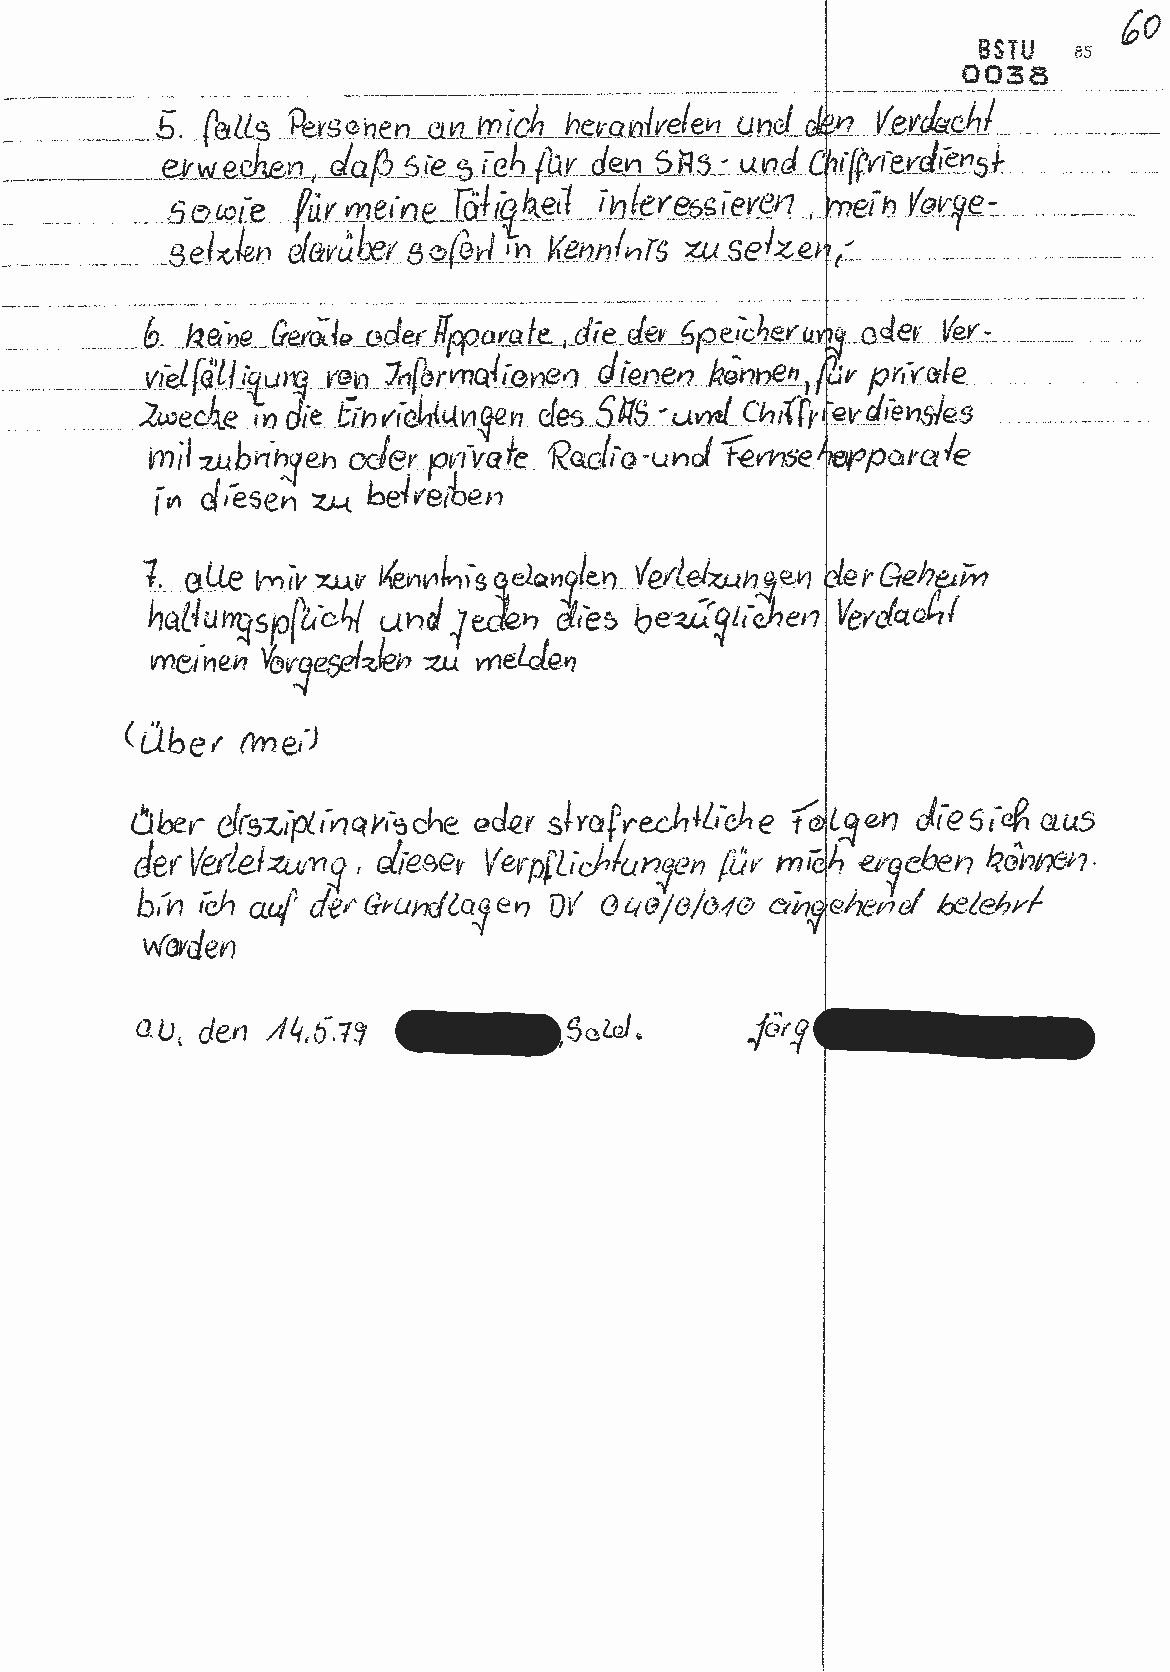 60
BSTU 85
0038
5. falls Personen an mich herantreten und den Verdacht
erwecken, daß sie sich für den SAS- und Chiffrierdienst
sowie für meine Tätigkeit interessieren, mein Vorge-
setzten darüber sofort in Kenntnis zu setzen,-
6. keine Geräte oder Apparate, die der Speicherung oder Ver-
vielfältigung von Informationen dienen können, für private
Zwecke in die Einrichtungen des SAS- und Chiffrierdienstes
mitzubringen oder private Radio- und Fernsehapparate
in diesen zu betreiben
7. alle mir zur Kenntnis gelangten Verletzungen der Geheim
haltungspflicht und jeden dies bezüglichen Verdacht
meinen Vorgesetzten zu melden
(Über mei)
Über disziplinarische oder strafrechtliche Folgen die sich aus
der Verletzung, dieser Verpflichtungen für mich ergeben können.
bin ich auf der Grundlagen DV 040/0/010 eingehend belehrt
worden
O.U. den 14.5.79 , Sold. Jörg